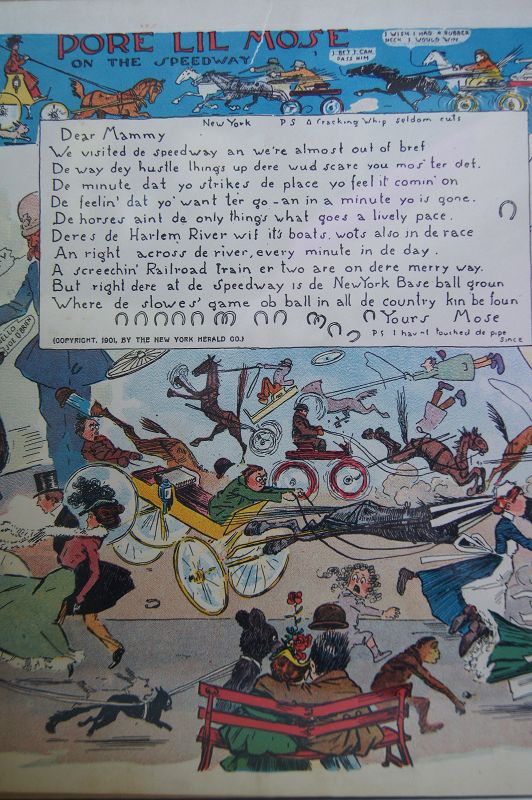 PORE LIL MOSE
ON THE SPEEDWAY
I BET I CAN PASS HIM
I WISH I HAD A RUBBER
NECK I WOULD WIN
New York P S A cracking whip seldom cuts
Dear Mammy
We visited de speedway an we're almost out of bref
De way dey hustle things up dere wud scare you mos' ter def.
De minute dat yo strikes de place yo feel it comin' on
De feelin' dat yo' want ter go - an in a minute yo is gone.
De horses aint de only things what goes a lively pace.
Deres de Harlem River wif its boats, wots also in de race
An right across de river, every minute in de day.
A screechin' Railroad Train er two are on dere merry way.
But right dere at de Speedway is de New York Base ball groun
Where de slowes' game ob ball in all de country kin be foun
Yours Mose
(COPYRIGHT, 1901, BY THE NEW YORK HERALD CO.)
P S I havnt touched de pipe
since